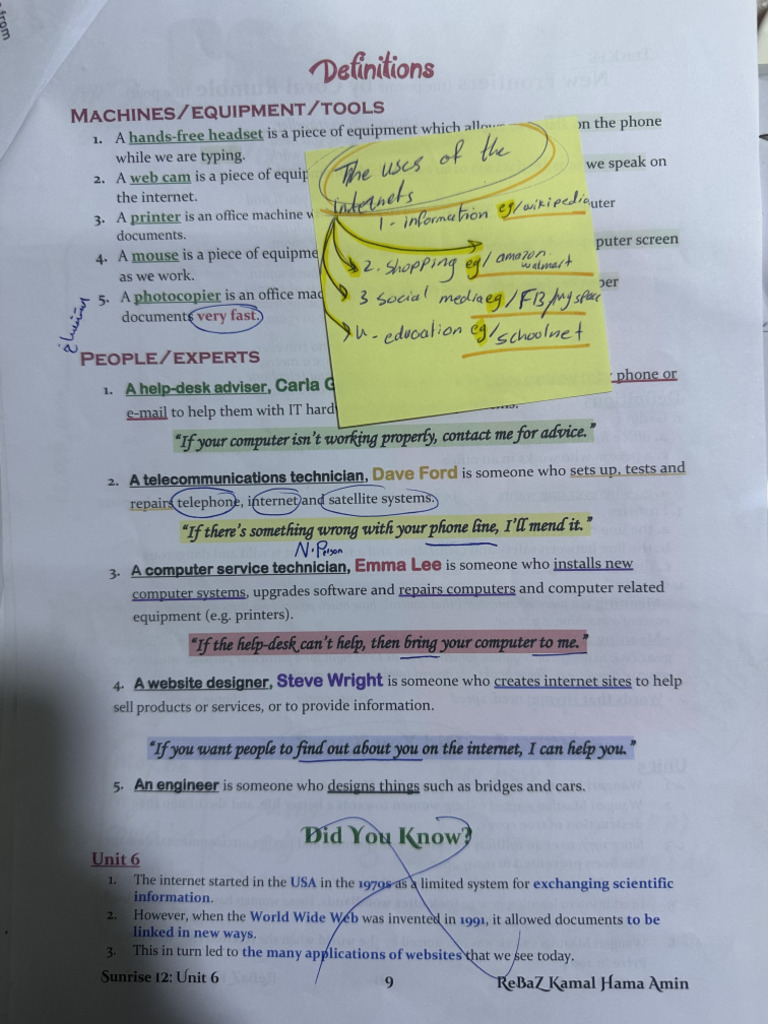 from
Definitions
MACHINES/EQUIPMENT/TOOLS
1. A hands-free headset is a piece of equipment which on the phone
while we are typing.
2. A web cam is a piece of we speak on
the internet.
3. A printer is an office machine
documents.
4. A mouse is a piece of screen
as we work.
5. A photocopier is an office
documents very fast.
The uses of the
internets
1- information eg/wikipedia
2. shopping eg/amazon
walmart
3 social media eg/FB/myspace
4- education eg/schoolnet
PEOPLE/EXPERTS
1. A help-desk adviser, Carla phone or
e-mail to help them with IT
"If your computer isn't working properly, contact me for advice."
2. A telecommunications technician, Dave Ford is someone who sets up, tests and
repairs telephone, internet and satellite systems.
"If there's something wrong with your phone line, I'll mend it."
N. Person
3. A computer service technician, Emma Lee is someone who installs new
computer systems, upgrades software and repairs computers and computer related
equipment (e.g. printers).
"If the help-desk can't help, then bring your computer to me."
4. A website designer, Steve Wright is someone who creates internet sites to help
sell products or services, or to provide information.
"If you want people to find out about you on the internet, I can help you."
5. An engineer is someone who designs things such as bridges and cars.
Did You Know?
Unit 6
1. The internet started in the USA in the 1970s as a limited system for exchanging scientific
information.
2. However, when the World Wide Web was invented in 1991, it allowed documents to be
linked in new ways.
3. This in turn led to the many applications of websites that we see today.
Sunrise 12: Unit 6 9 ReBaZ Kamal Hama Amin